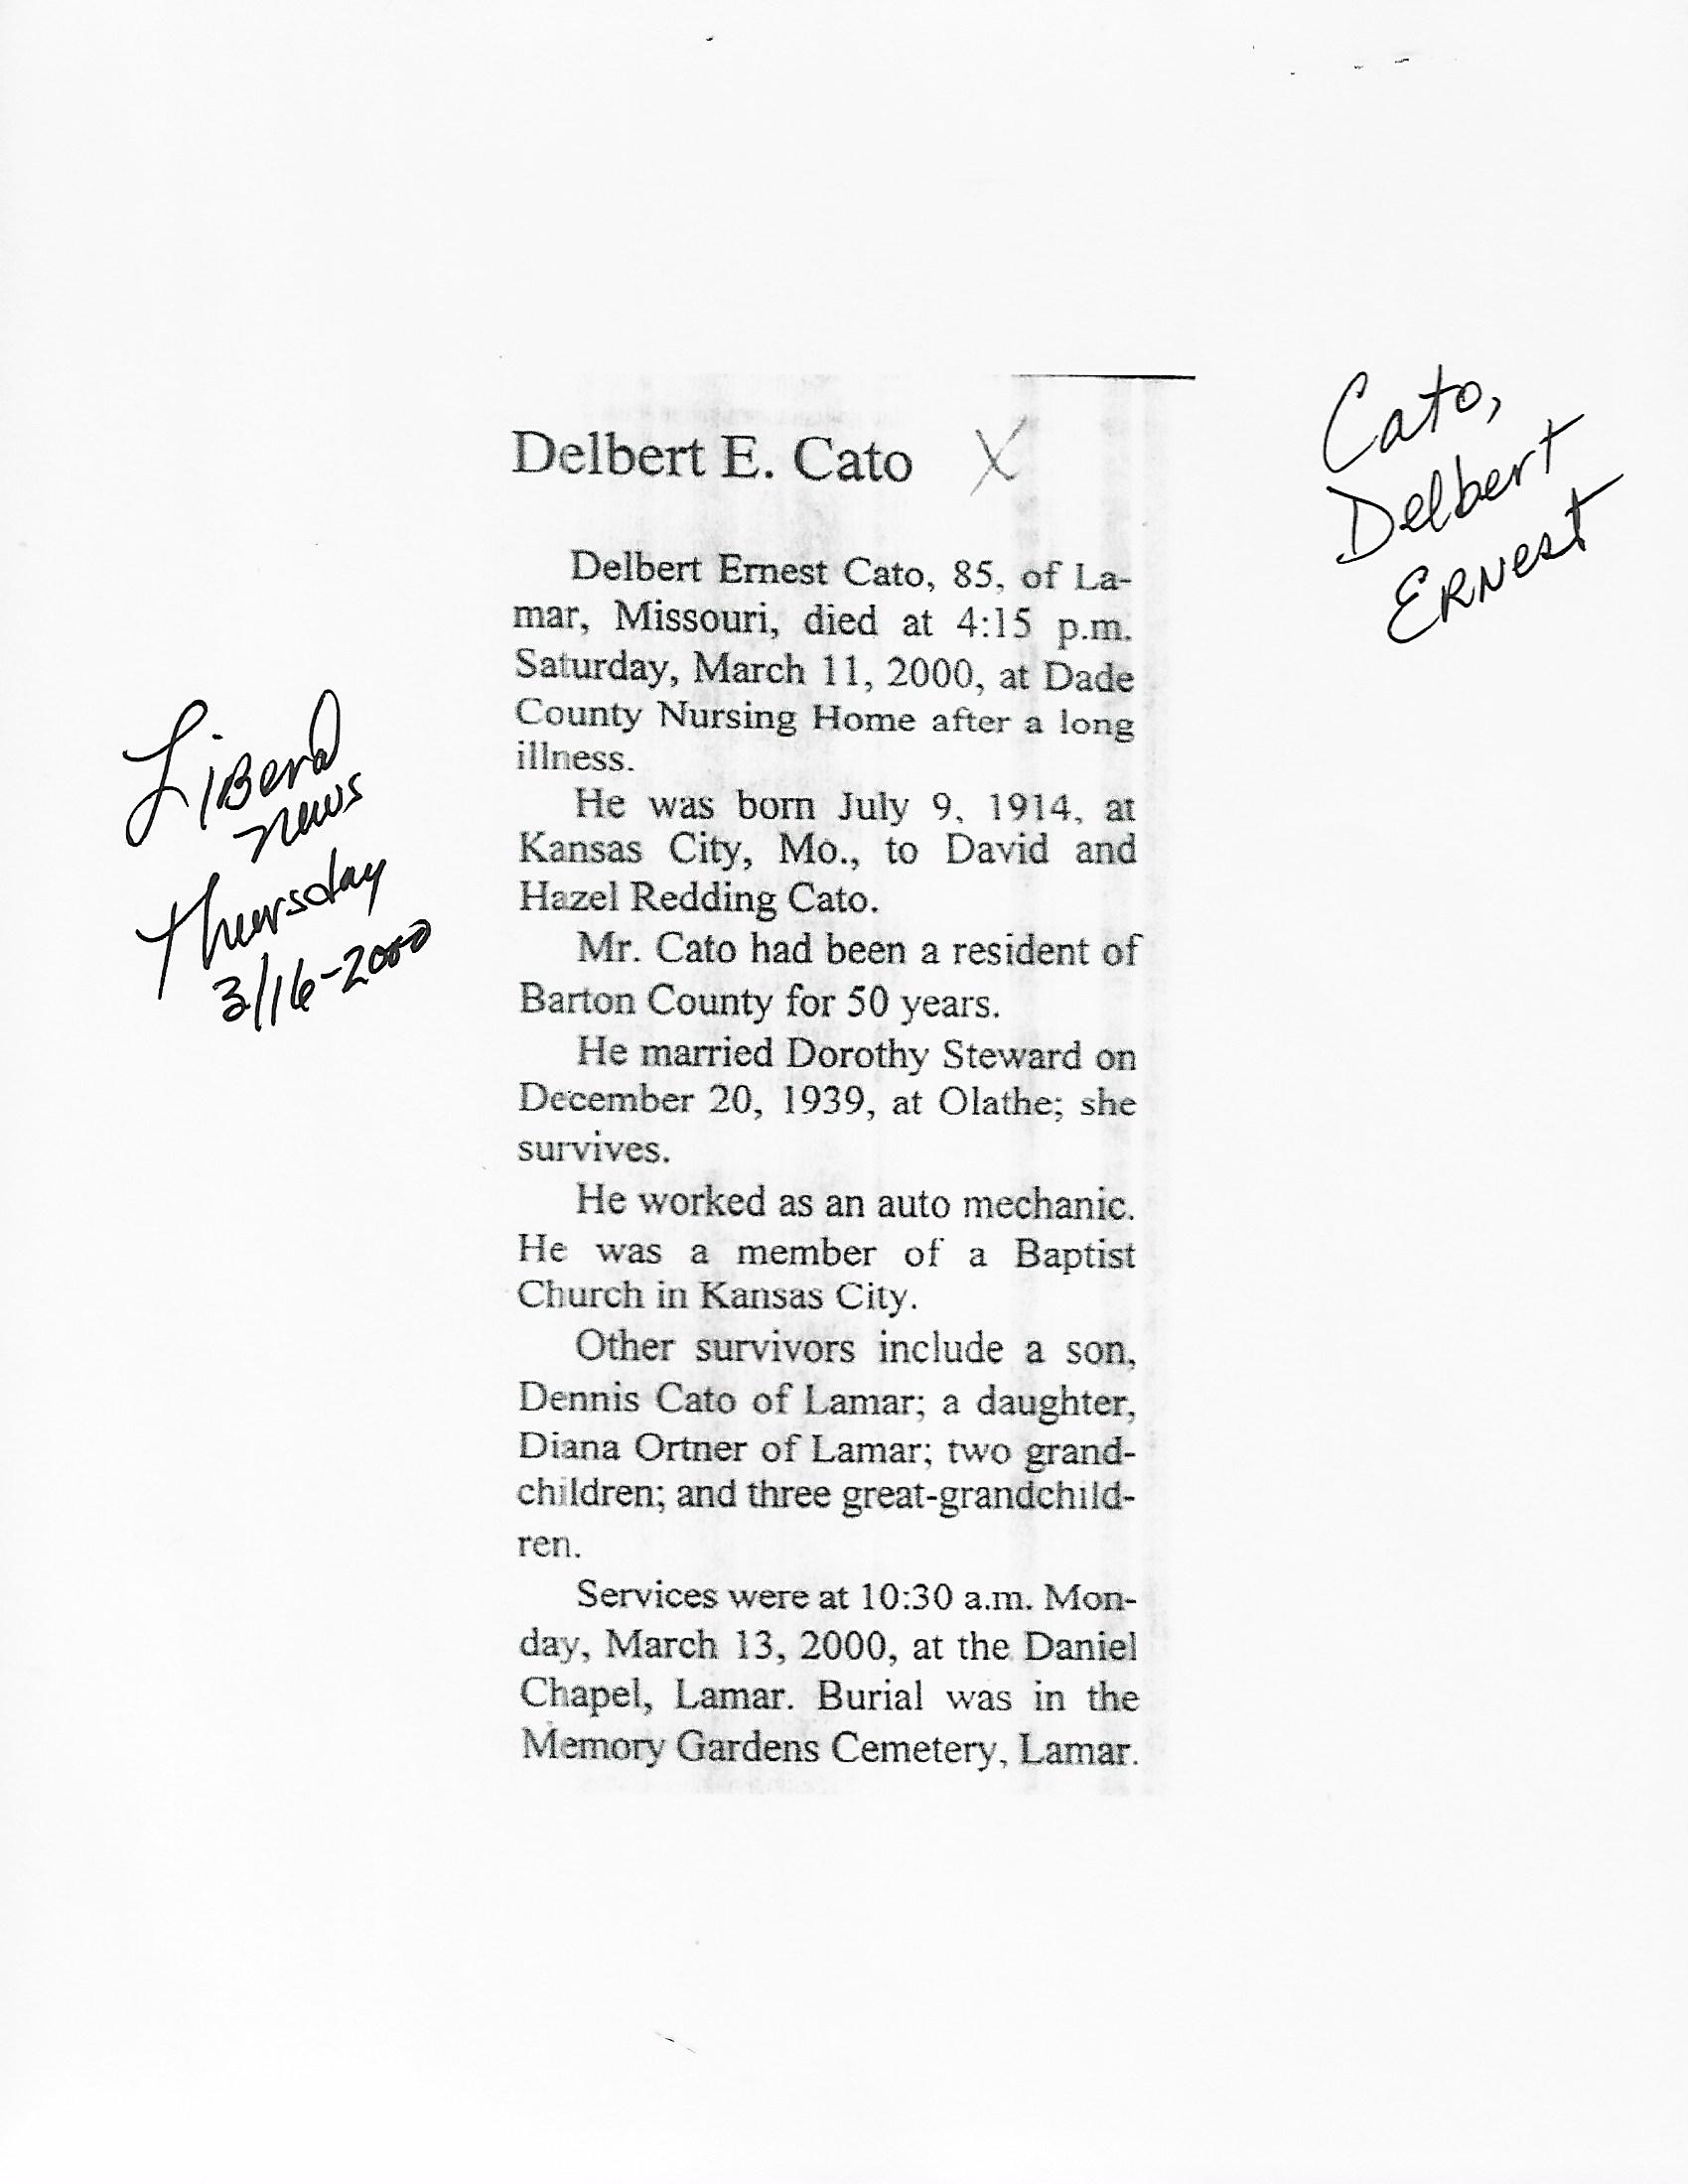 Cato,
Delbert
Ernest
Delbert E. Cato X
Liberal
news
Thursday
3/16-2000
Delbert Ernest Cato, 85, of La-
mar, Missouri, died at 4:15 p.m.
Saturday, March 11, 2000, at Dade
County Nursing Home after a long
illness.
He was born July 9, 1914, at
Kansas City, Mo., to David and
Hazel Redding Cato.
Mr. Cato had been a resident of
Barton County for 50 years.
He married Dorothy Steward on
December 20, 1939, at Olathe; she
survives.
He worked as an auto mechanic.
He was a member of a Baptist
Church in Kansas City.
Other survivors include a son,
Dennis Cato of Lamar; a daughter,
Diana Ortner of Lamar; two grand-
children; and three great-grandchild-
ren.
Services were at 10:30 a.m. Mon-
day, March 13, 2000, at the Daniel
Chapel, Lamar. Burial was in the
Memory Gardens Cemetery, Lamar.